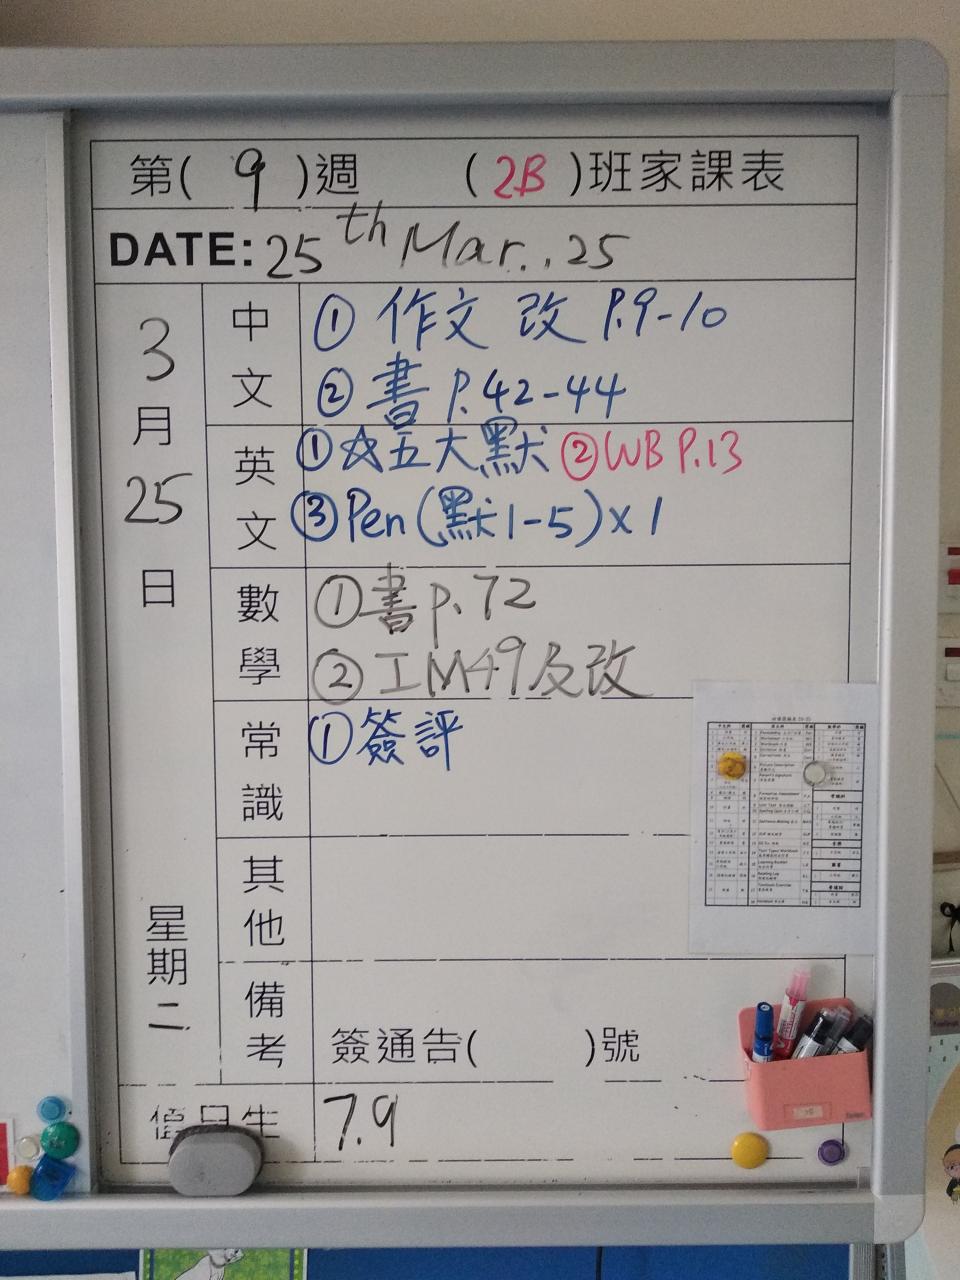 第( 9 )週 ( 2B )班家課表
DATE: 25th Mar., 25
3月25日 星期二
中文
① 作文 改 P.9-10
② 書 P.42-44
英文
① ☆五大默 ② WB P.13
③ Pen(默1-5)x1
數學
① 書 p.72
② 工M49及改
常識
① 簽評
其他
備考
簽通告( )號
值日生 7.9